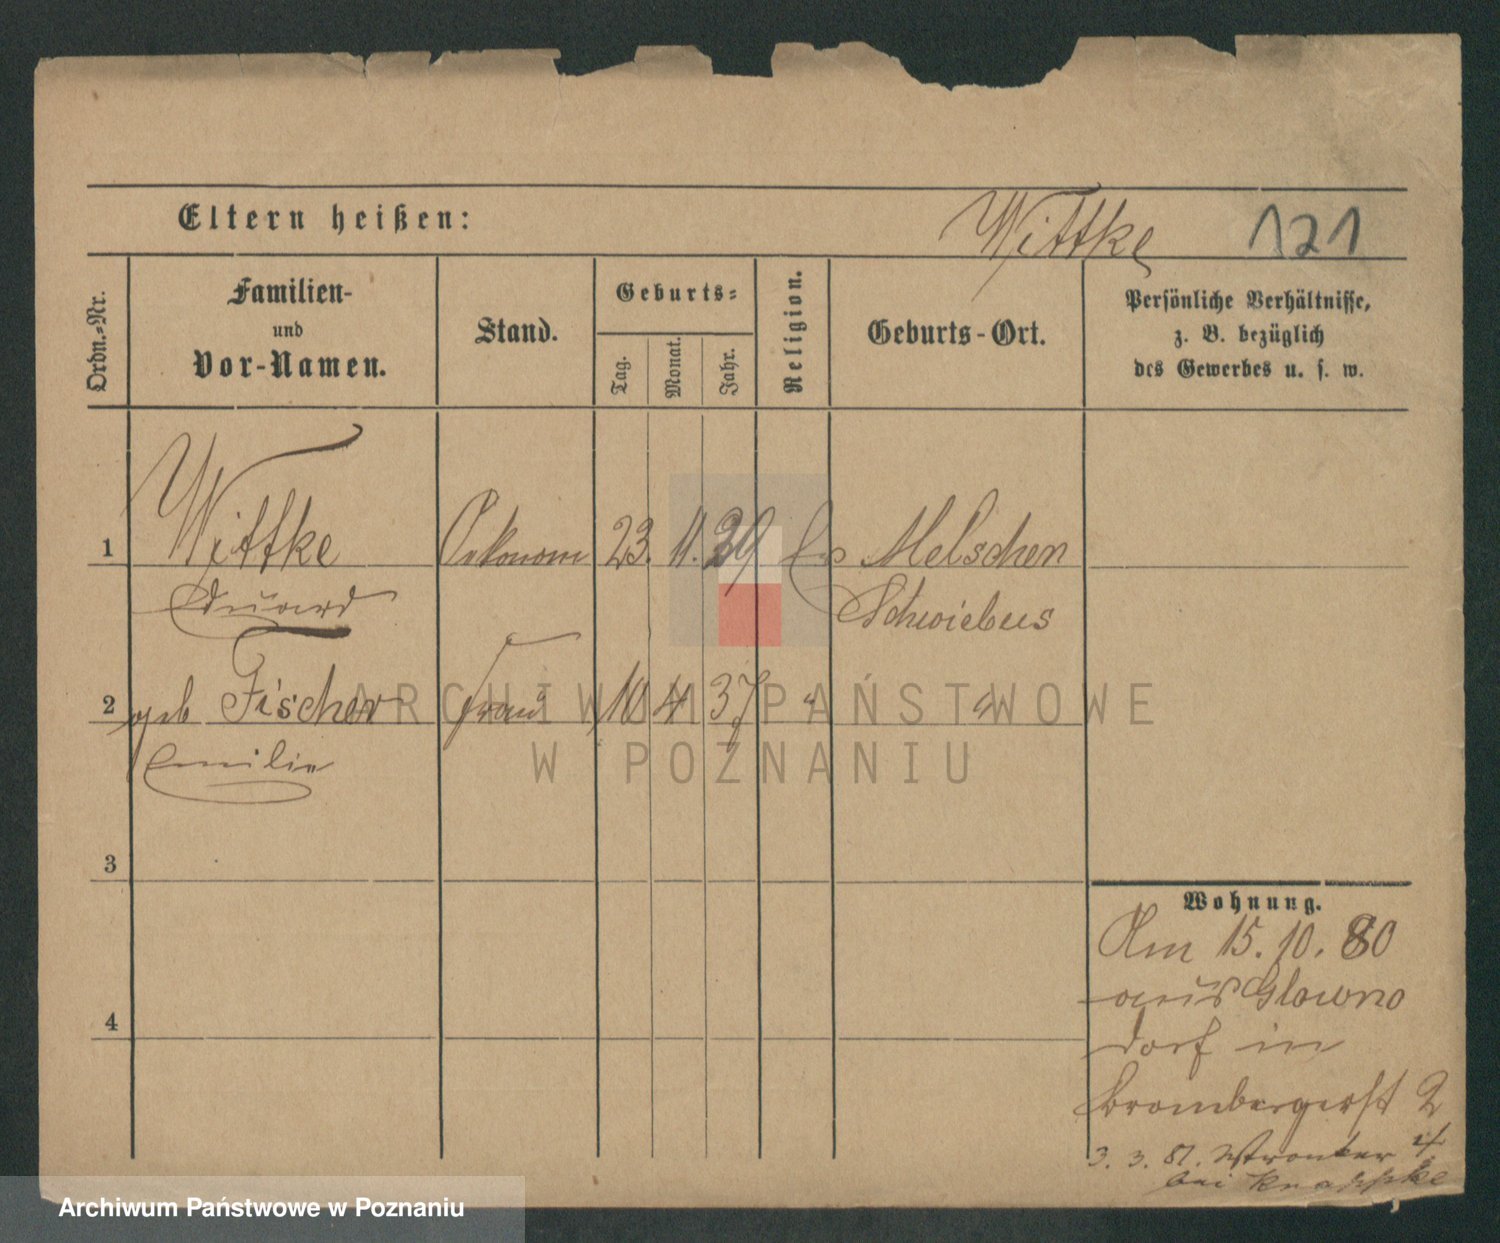 Eltern heißen:
Wittke 121
Ordn.-Nr.
Familien-
und
Vor-Namen.
Stand.
Geburts-
Tag.
Monat.
Jahr.
Religion.
Geburts-Ort.
Persönliche Verhältnisse,
z. B. bezüglich
des Gewerbes u. s. w.
1 Wittke Oekonom 23. 11. 29 ev Melschen
Eduard Schwiebus
2 geb Fischer Frau 10 4 37 " "
Emilie
3
4
Wohnung.
Am 15. 10. 80
aus Glowno
dorf in
Brombergerst 2
3. 3. 81. Wronker 4
bei
ARCHIWUM PAŃSTWOWE
W POZNANIU
Archiwum Państwowe w Poznaniu